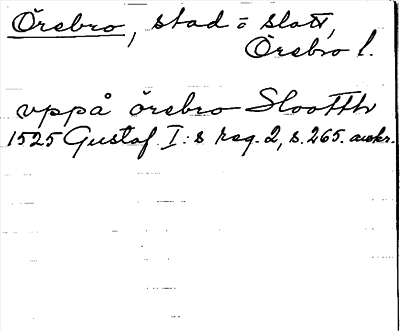 Örebro, stad = slott,
Örebro l.
vppå örebro Slootth
1525 Gustaf I:s reg. 2, s. 265. avskr.